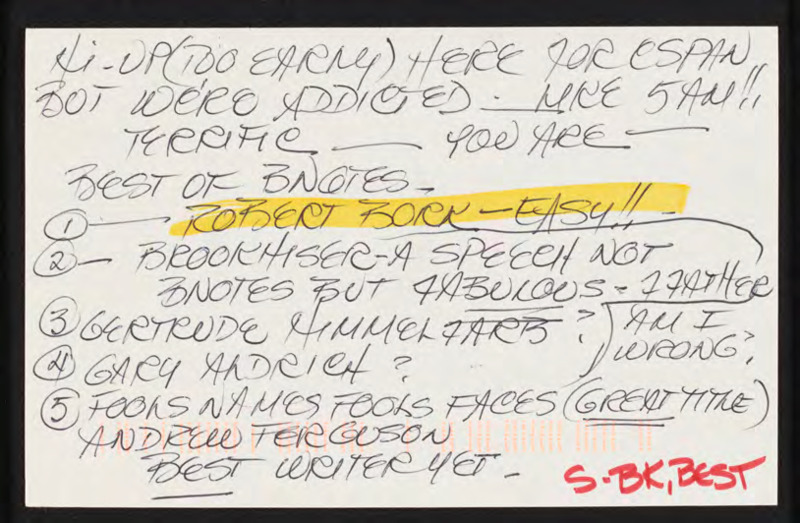 HI-UP (TOO EARLY) HERE FOR CSPAN
BUT WE'RE ADDICTED - LIKE 5 AM!!
TERRIFIC — YOU ARE —
BEST OF BNOTES -
① — ROBERT BORK - EASY!! -
② - BROOKHISER - A SPEECH NOT
BNOTES BUT FABULOUS - FATHER
③ GERTRUDE HIMMELFARB? AM I
WRONG?
④ GARY ALDRICH?
⑤ FOOLS NAMES FOOLS FACES (GREAT TITLE)
ANDREW FERGUSON
BEST WRITER YET -
S-BK, BEST